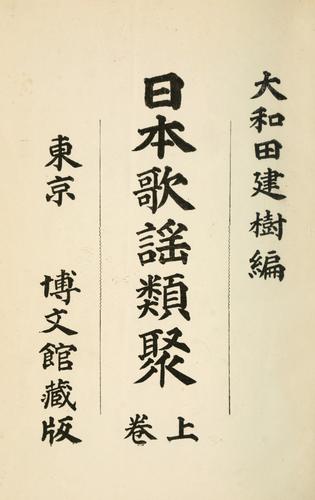 大和田建樹編
日本歌謡類聚
上卷
東京 博文館藏版